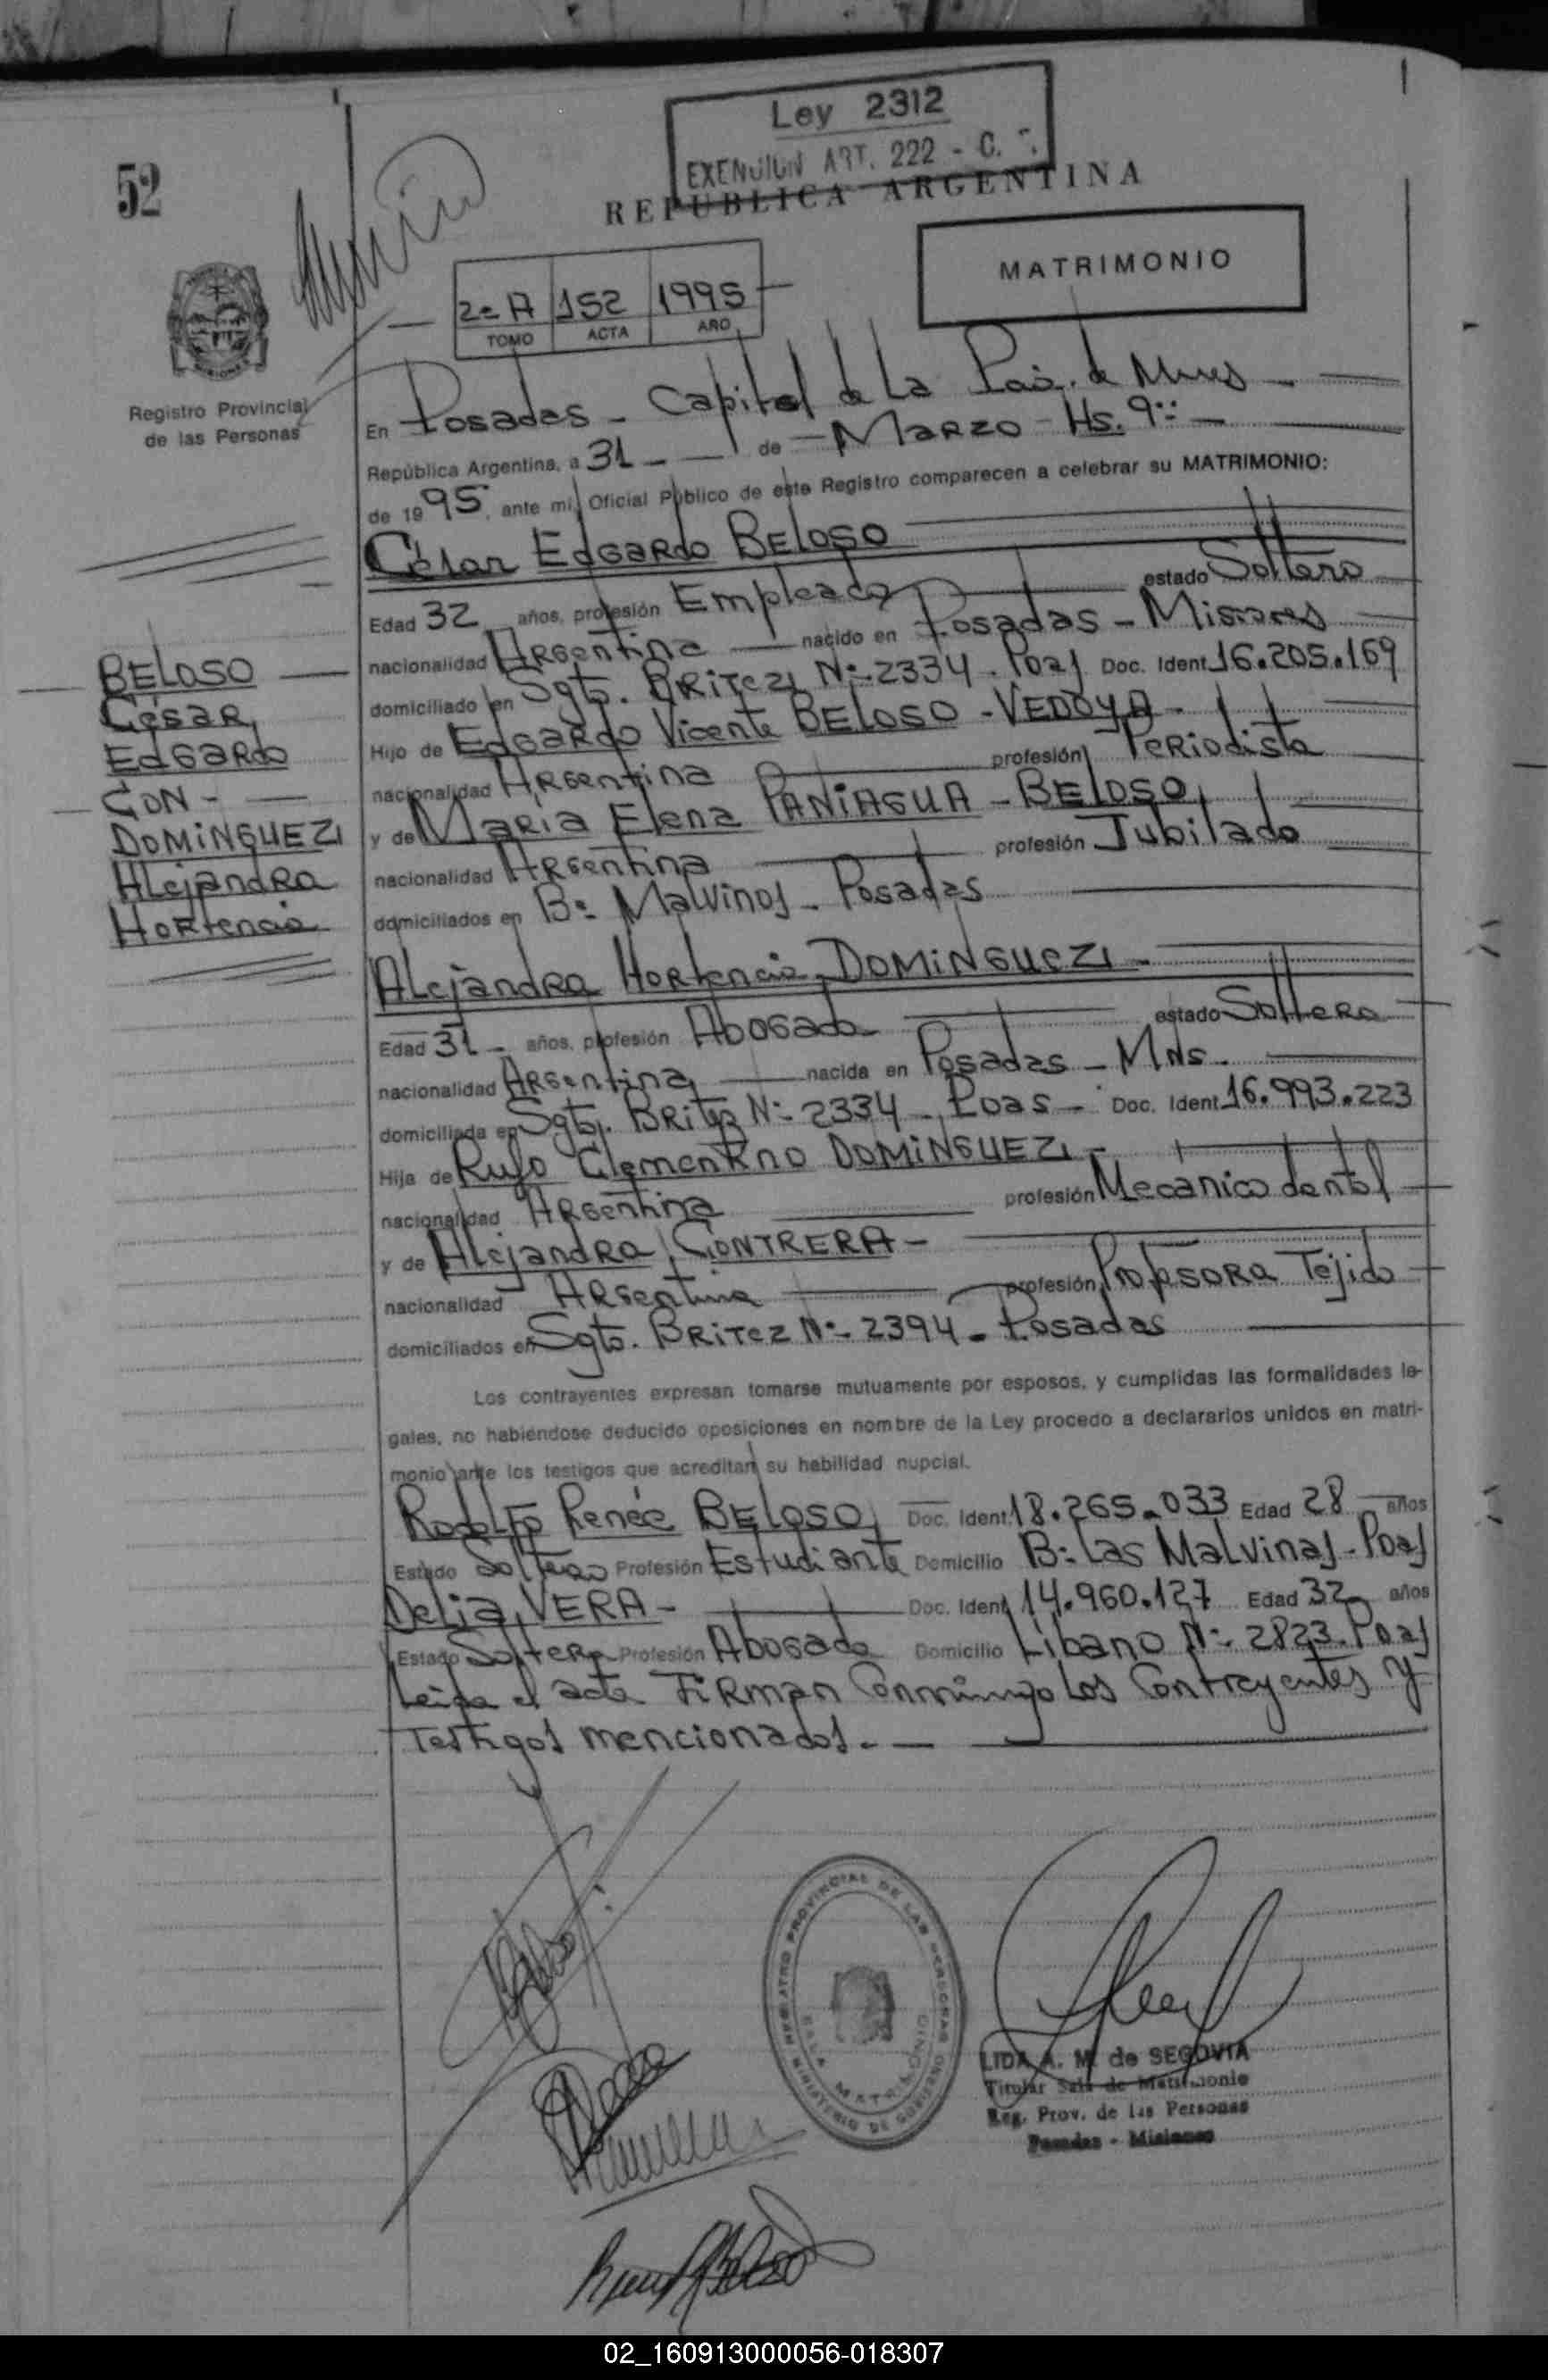 Ley 2312
EXENCION ART. 222 - C.
52
REPUBLICA ARGENTINA
MATRIMONIO
2º A 152 1995
TOMO ACTA AÑO
MISIONES
Registro Provincial
de las Personas
En Posadas - Capital de La Pcia. de Mnes
República Argentina, a 31 - de - Marzo - Hs. 9
de 1995, ante mi, Oficial Público de este Registro comparecen a celebrar su MATRIMONIO:
César Edgardo BELOSO
Edad 32 años, profesión Empleado estado Soltero
nacionalidad Argentina nacido en Posadas - Misiones
domiciliado en Sgto. Britez Nº 2334 - Pdas Doc. Ident 16.205.169
Hijo de Edgardo Vicente BELOSO - VEDOYA -
nacionalidad Argentina profesión Periodista
y de María Elena PANIAGUA - BELOSO
nacionalidad Argentina profesión Jubilado
domiciliados en Bº Malvinas - Posadas
BELOSO
César
Edgardo
CON -
DOMINGUEZ
Alejandra
Hortencia
Alejandra Hortencia DOMINGUEZ -
Edad 31 - años, profesión Abogado estado Soltera
nacionalidad Argentina nacida en Posadas - Mns.
domiciliada en Sgto. Britez Nº 2334 - Pdas - Doc. Ident 16.993.223
Hija de Rufo Clementino DOMINGUEZ -
nacionalidad Argentina profesión Mecanico dental
y de Alejandra CONTRERA -
nacionalidad Argentina profesión Profesora Tejido
domiciliados en Sgto. Britez Nº 2394 - Posadas
Los contrayentes expresan tomarse mutuamente por esposos, y cumplidas las formalidades le-
gales, no habiéndose deducido oposiciones en nombre de la Ley procedo a declararlos unidos en matri-
monio ante los testigos que acreditan su habilidad nupcial.
Rodolfo Renée BELOSO Doc. Ident. 18.265.033 Edad 28 años
Estado Soltero Profesión Estudiante Domicilio Bº Las Malvinas - Pdas
Delia VERA - Doc. Ident 14.960.127 Edad 32 años
Estado Soltera Profesión Abogado Domicilio Líbano Nº 2823 - Pdas
Leida el acta Firman Conmigo Los Contrayentes y
Testigos mencionados. -
REGISTRO PROVINCIAL DE LAS PERSONAS
MINISTERIO DE GOBIERNO
SALA MATRIMONIO
LIDA A. M. de SEGOVIA
Titular Sala de Matrimonio
Reg. Prov. de las Personas
Posadas - Misiones
02_160913000056-018307